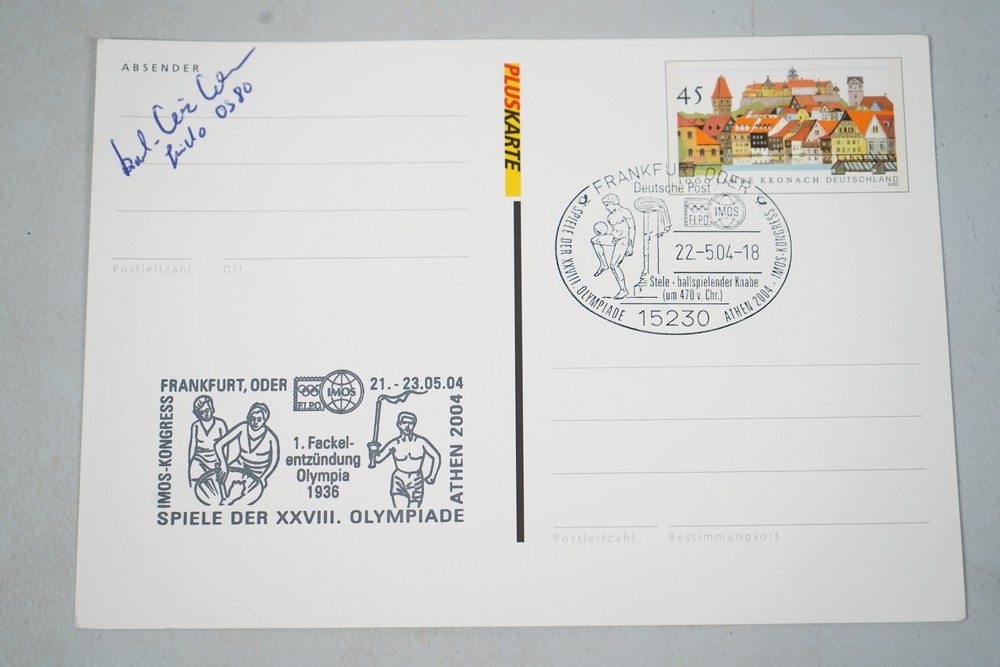 ABSENDER
0580
Postleitzahl Ort
PLUSKARTE
45
JAHRE KRONACH DEUTSCHLAND
2003
FRANKFURT ODER
Deutsche Post
F.I.P.O. IMOS
SPIELE DER XXVIII. OLYMPIADE ATHEN 2004 - IMOS-KONGRESS
22.-5.04-18
Stele - ballspielender Knabe
(um 470 v. Chr.)
15230
FRANKFURT, ODER F.I.P.O. IMOS 21. - 23.05.04
IMOS-KONGRESS
1. Fackel-
entzündung
Olympia
1936
ATHEN 2004
SPIELE DER XXVIII. OLYMPIADE
Postleitzahl Bestimmungsort